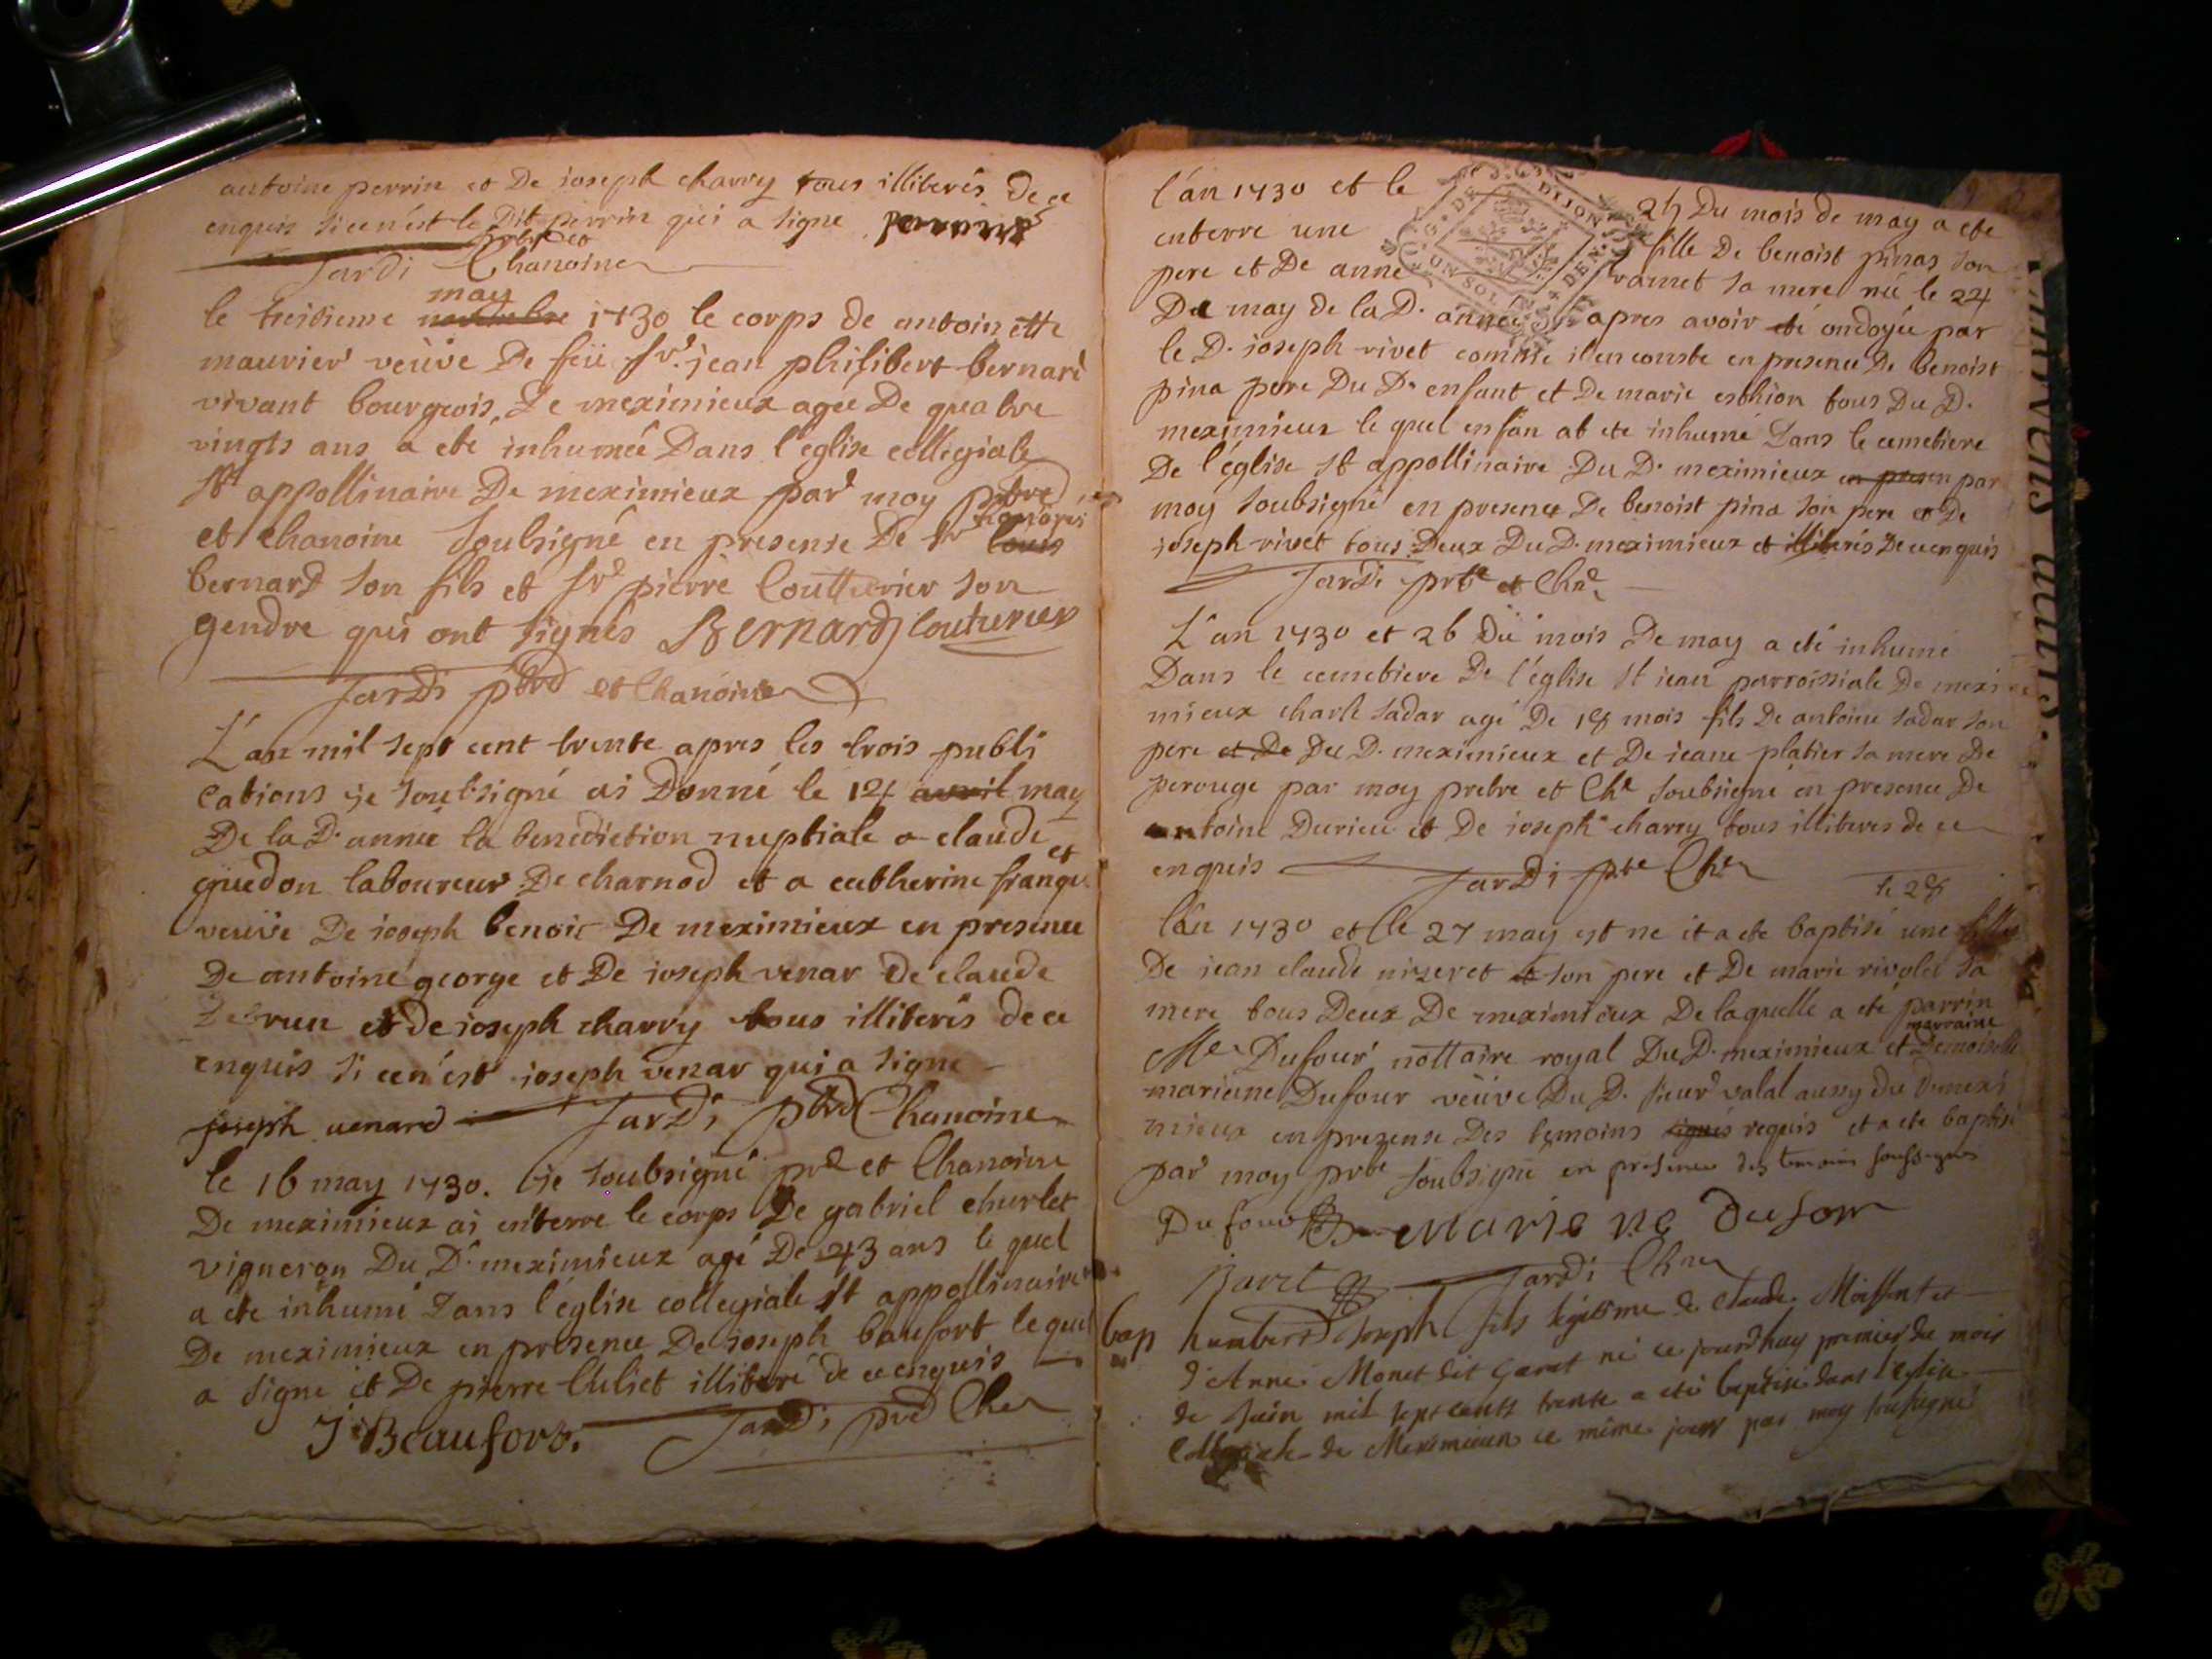 antoine perrin et De ioseph charvy tous illiterés de ce
enquis si cen'est le Dit perrin qui a signe perrin
Jardi prbre et Chanoine
may
le treisieme novembre 1730 le corps de antoinette
maurier veüve De feü sr. jean philibert bernard
vivant bourgeois De meximieux agée De quatre
vingts ans a eté inhumée Dans l'eglise collegiale
St appollinaire De meximieux par moy prbre
et chanoine soubsigné en presense De sr louis
bernard son fils et sr pierre Coutturier son
gendre qui ont signés Bernard Couturier
Jardi pbre et Chanoine
L'an mil sept cent trente apres les trois publi
cations je soubsigné ai Donné le 14 avril may
De la D. année la benediction nuptiale a claude
guedon laboureur De charnod et a catherine franq
veuve De ioseph benoit De meximieux en presence
De antoine george et De ioseph venar De claude
et de ioseph charvy tous illiterés de ce
enquis si cen'est ioseph venar qui a signe
joseph venard Jardi pbre Chanoine
le 16 may 1730. je soubsigné pre et Chanoine
De meximieux ai enterre le corps De gabriel churlet
vigneron Du D. meximieux agé De 43 ans le quel
a ete inhumé Dans l'église collegiale St appollinaire
De meximieux en presence De ioseph baufort lequel
a signé et De pierre Culiet illiteré de ce enquis
J Beaufort. Jardi pre Che
l'an 1730 et le 25 Du mois de may a ete
enterre une fille De benoist pinas son
pere et De anne ramet sa mere né le 24
De may de la D. année apres avoir eté ondoyée par
le D. ioseph rivet comme il en conste en presence De benoist
pina pere Du D. enfant et De marie tous Du D.
meximieux le quel enfan at ete inhumé Dans le cemetiere
De l'église St appollinaire Du D. meximieux en presen par
moy soubsigné en presence De benoist pina son pere et De
ioseph rivet tous Deux Du D. meximieux et illiterés De ce enquis
Jardi prbe et Chne
L'an 1730 et 26 Du mois De may a eté inhumé
Dans le cemetiere De l'église St iean parroissiale De mexi
mieux charle sadar agé De 18 mois fils De antoine sadar son
pere et De Du D. meximieux et De ieane platier sa mere De
perouge par moy prebre et Che soubsigné en presence De
antoine Durieu et De ioseph charvy tous illiteres de ce
enquis Jardi pbre Che
le 28
l'an 1730 et le 27 may est ne et a ete baptisé une fille
De iean claude nizeret et son pere et De marie rivolet sa
mere tous Deux De meximieux De laquelle a eté parrin
marraine
Me Dufour nottaire royal Du D. meximieux et Demoiselle
mariane Dufour veüve Du D. sieur valal aussy du D mexi
mieux en presense Des temoins signés requis et a ete baptisé
par moy prbe soubsigné en presence des temoins soussignes
Dufour Mariene Dufour
Jardi Chne
bap humbert Joseph fils légitime de Claude et
d'Anne Monet dit Garat né ce jourdhuy premier du mois
de Juin mil sept cents trente a eté baptisé dans l'Eglise
Collegiale de Meximieux ce même jour par moy soussigné